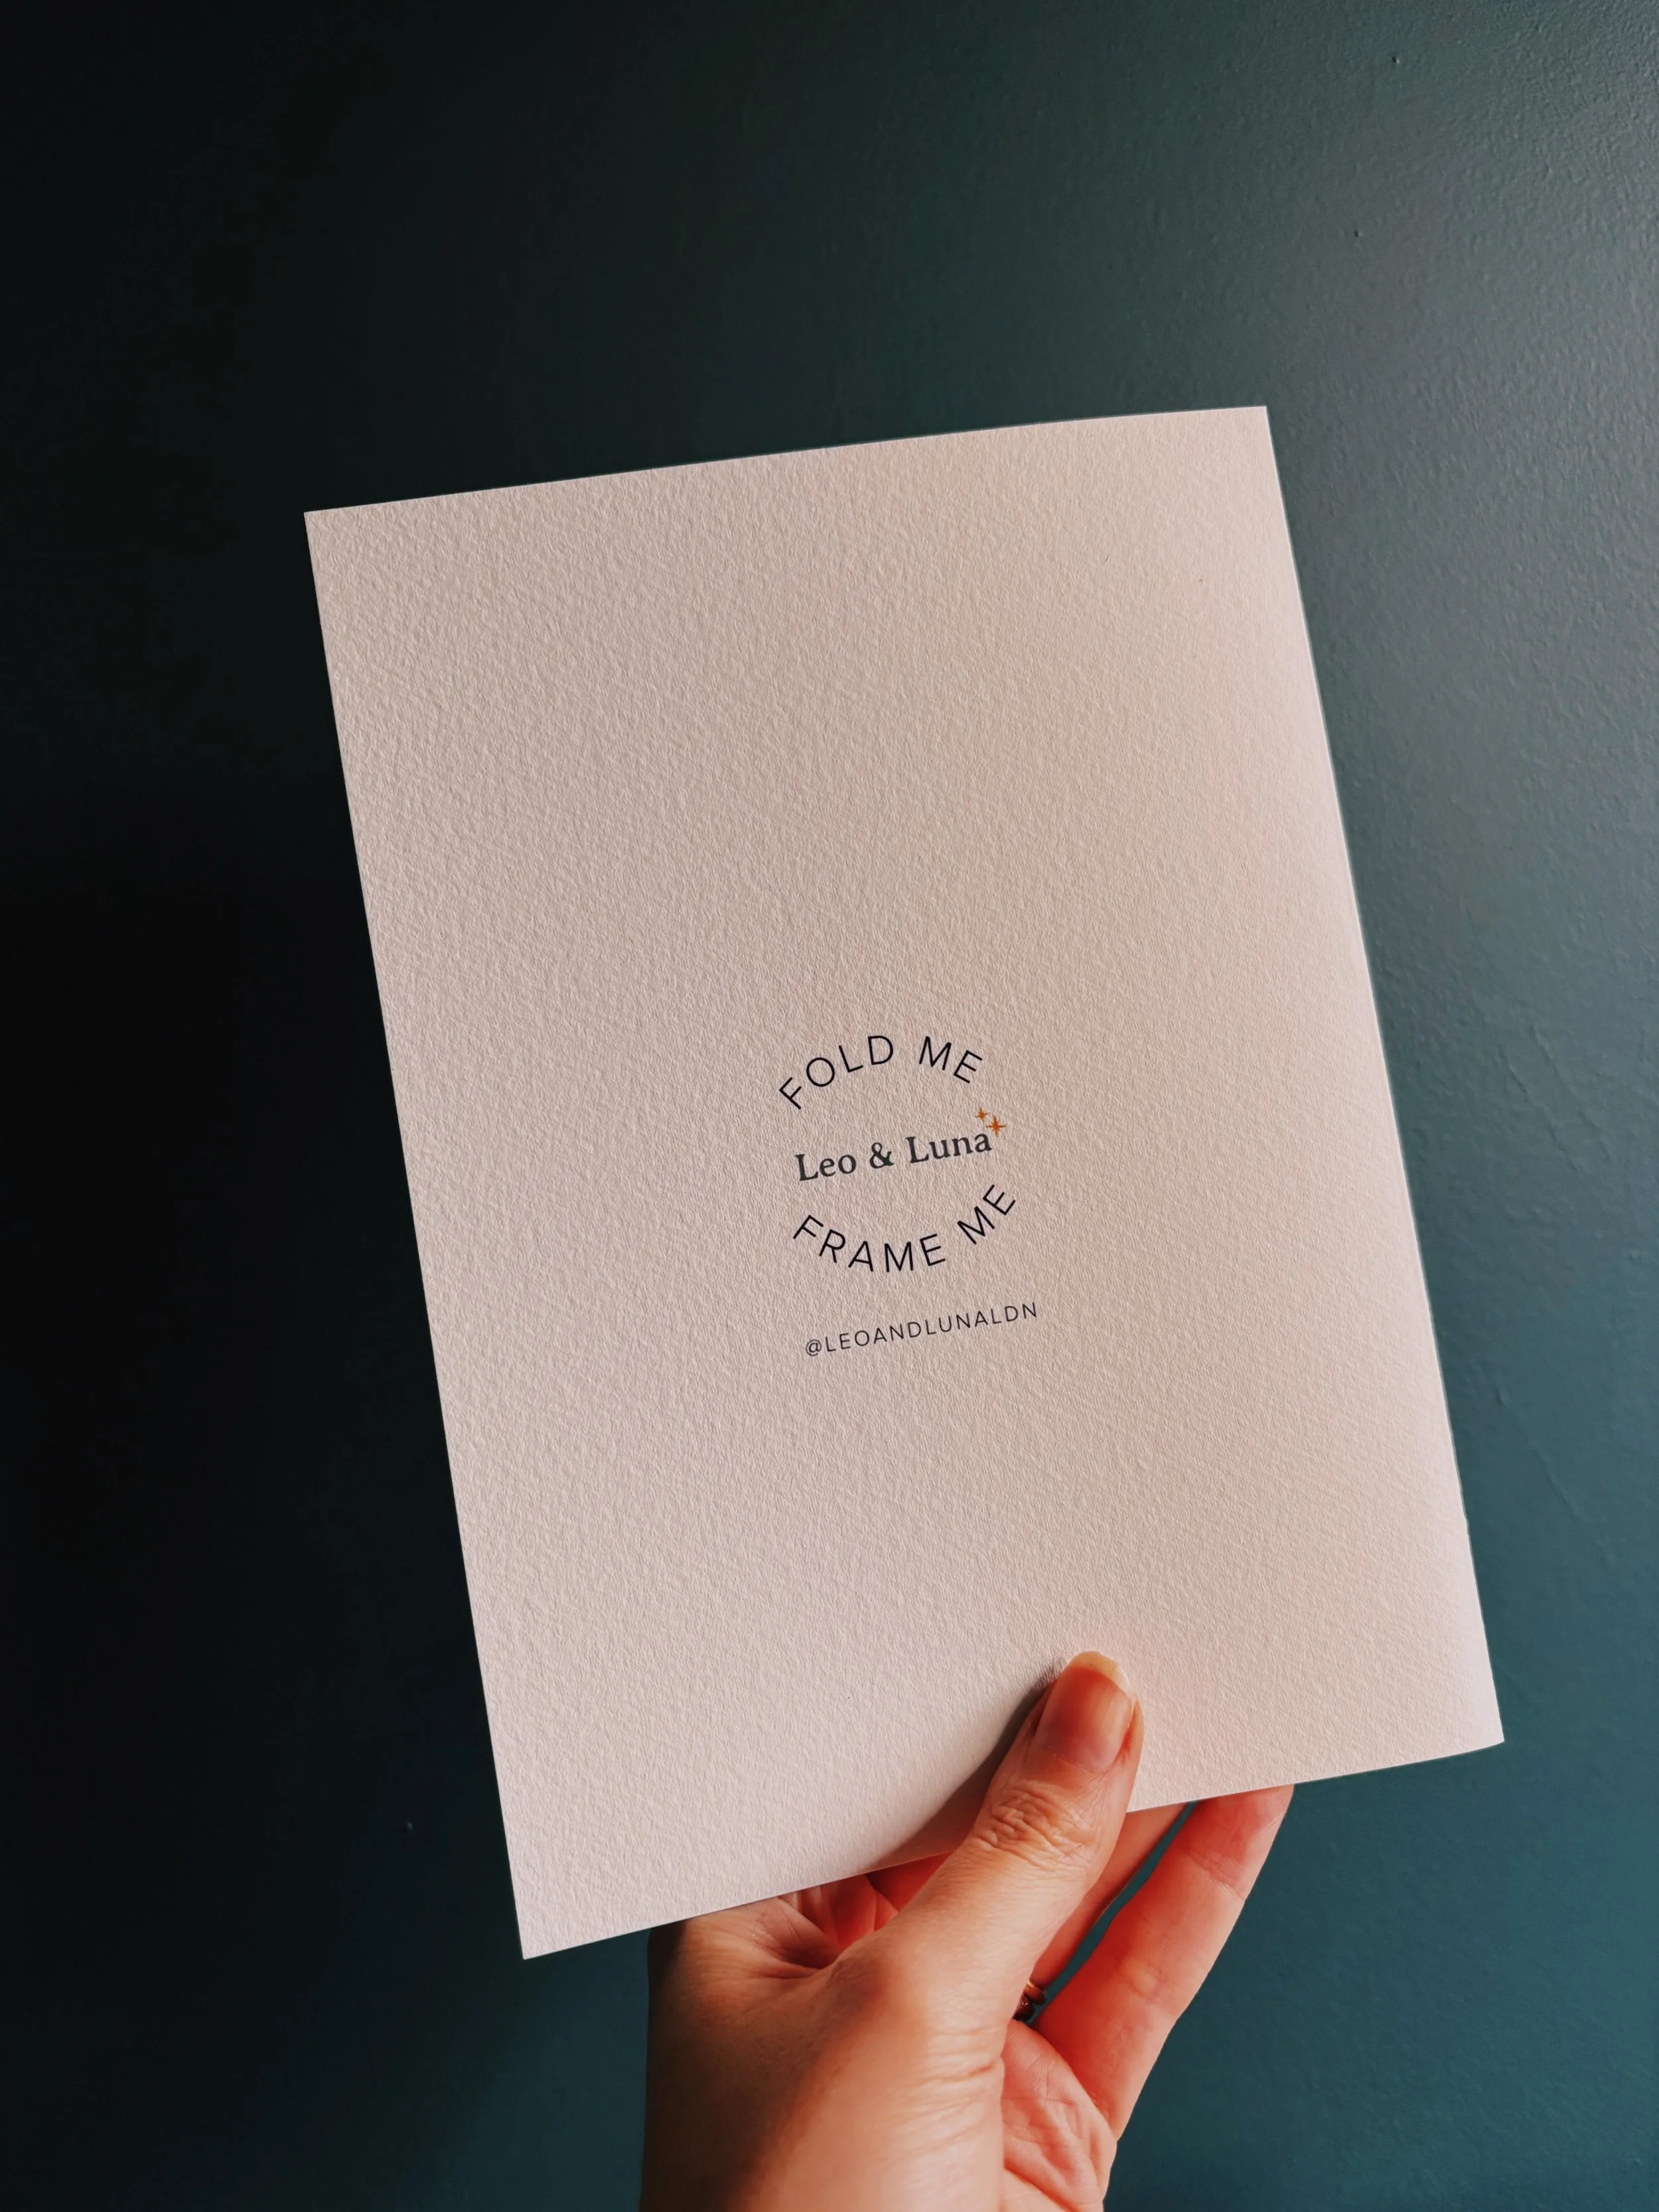 FOLD ME
Leo & Luna
FRAME ME
@LEOANDLUNALDN